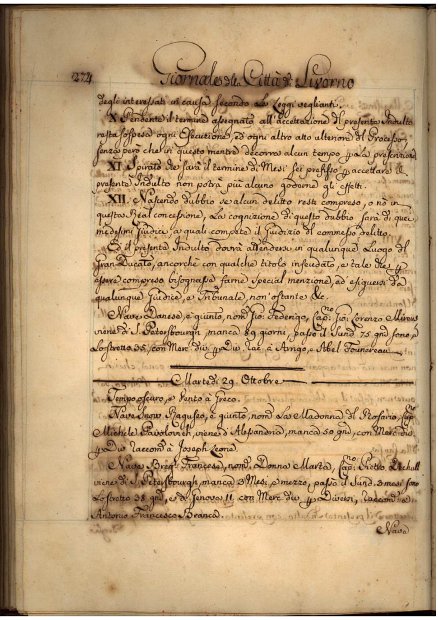 224 Giornale della Città di Livorno
degli interessati in causa secondo le Leggi veglianti.
X. Pendente il termine assegnato all'accettazione del presente Indulto
resta sospesa ogni Esecuzione, ed ogni altro atto ulteriore di Processo,
senza però che in questo mentre decorra alcun tempo
XI. Spirato che sarà il termine di Mesi sei prefisso accettare il
presente Indulto non potrà più alcuno goderne gli effetti.
XII. Nascendo dubbio se alcun delitto resti compreso, o nò in
questa Real concessione, la cognizione di questo dubbio sarà di quei
medesimi Giudici, a quali compete il Giudizio del commesso delitto.
E il presente Indulto dovrà attendersi in qualunque Luogo del
Gran Ducato, ancorchè con qualche titolo infeudato, e tale che
essere compreso bisognasse farne special menzione, ed eseguirsi da
qualunque Giudice, e Tribunale, non ostante &c.
Nave Danese, è giunto, nom. Federigo, Cap:no Lorenzo
viene di S. Petersbourgh, manca 89 giorni, passò il Sund 75 gni sono,
lo stretto 35, con Merc: div: a Arrigo, e Abel
Martedì 29. Ottobre
Tempo oscuro, e Vento à Greco.
Nave Snow Raguseo, è giunto, nom: La Madonna del Rosario,
Michele viene d'Alessandria, manca 50 gni, con Merc: div:
raccom: a Joseph Leone
Nave Brigt: Francese, nom: Donna Marta, Cap:no Pietro
viene di S. Petersbourgh, manca 3 Mesi, e mezzo, passò il Sund 3 mesi sono
lo stretto 38 gni, e di Genova 11 con Merc: div: Diversi, raccom: a
Antonio Francesco Branca.
Nave